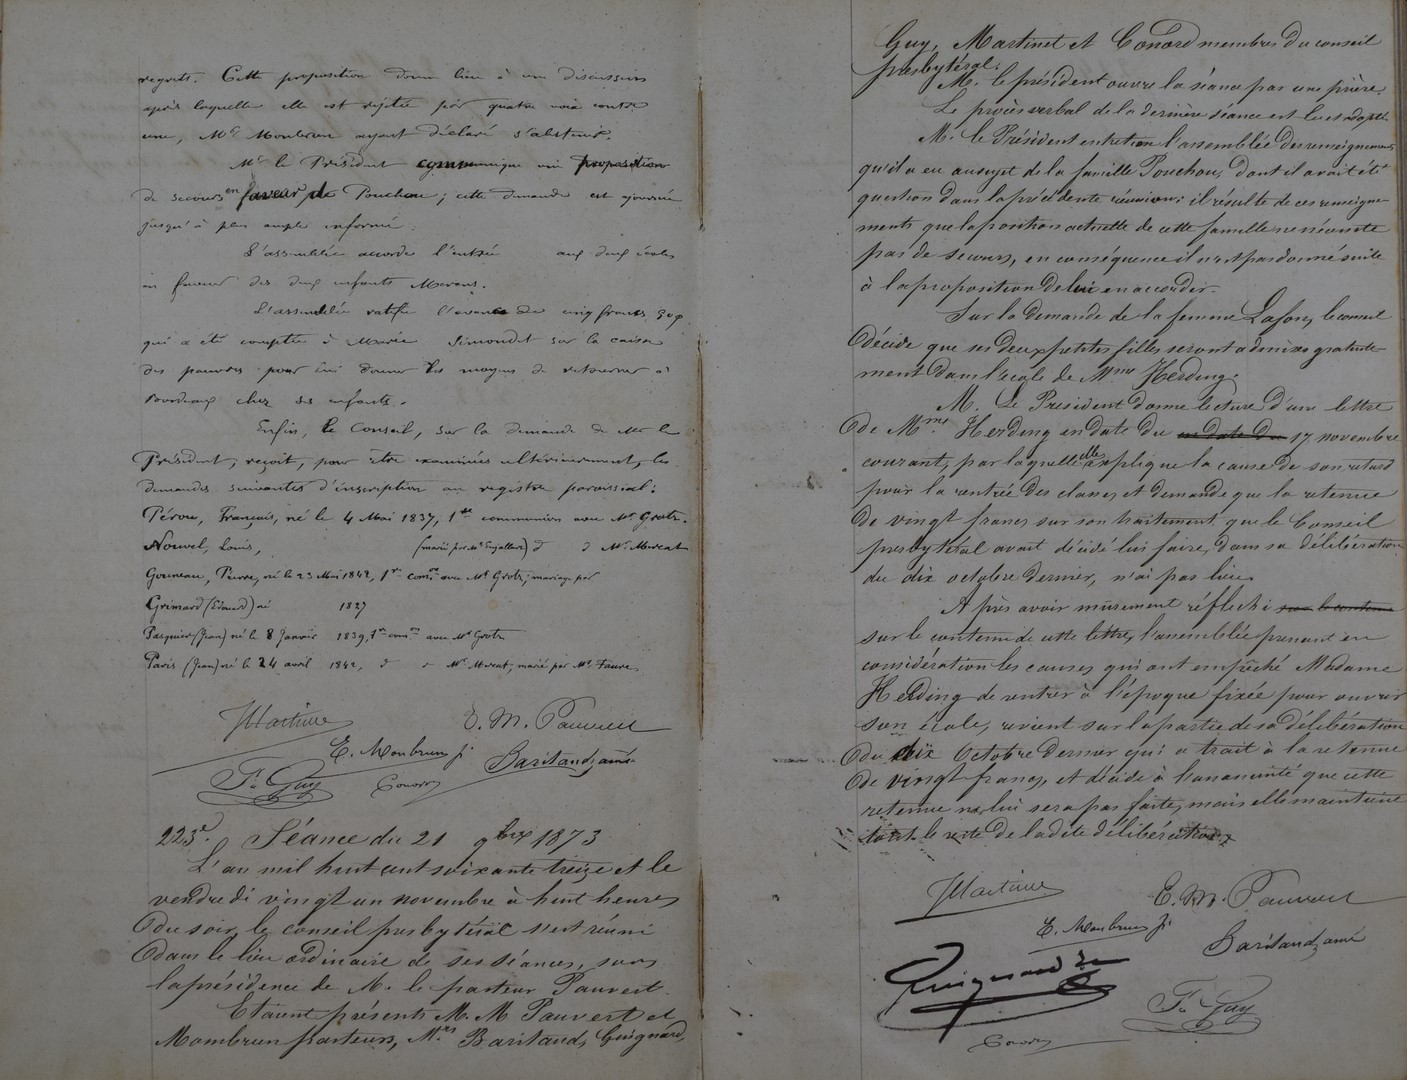 regrets. Cette proposition donne lieu à une discussion
après laquelle elle est rejetée par quatre voix contre
une, Mr Monbrun ayant déclaré s'abstenir.
Mr le Président communique une proposition
de secours en faveur de Pouchou; cette demande est ajournée
jusqu'à plus ample informé.
L'assemblée accorde l'entrée aux deux écoles
en faveur des deux enfants
L'assemblée ratifie l'avance de cinq francs
qui a été comptée à Marie Simondit sur la caisse
des pauvres pour lui donner les moyens de retourner à
Bordeaux chez ses enfants.
Enfin, le Conseil, sur la demande de Mr le
Président, reçoit, pour être examinées ultérieurement, les
demandes suivantes d'inscription au registre paroissial:
Pérou, François, né le 4 Mai 1837, 1re communion avec Mr Grotz.
Nouvel, Louis, (marié par Mr ) d d Mr Morcat
Gouneau, Pierre, né le 23 Mai 1842, 1re comon avec Mr Grotz; mariage par
Grimard (Edouard) né 1827
Pasquier (Jean) né le 8 Janvier 1839, 1re comon avec Mr Grotz
Paris (Jean) né le 24 avril 1842, d d Mr Morcat, marié par Mr Faure
E. M. Pauvert
E. Monbrun Jr
Baritaud, aîné
Fs Guy
Conord
223e. Séance du 21 9bre 1873
L'an mil huit cent soixante treize et le
vendredi vingt un novembre à huit heures
du soir, le conseil presbytéral s'est réuni
dans le lieu ordinaire de ses séances, sous
la présidence de M. le pasteur Pauvert.
Etaient présents M. M Pauvert et
Mombrun pasteurs, Mrs Baritaud, Guignard,
Guy, Martinet et Conord membres du conseil
presbytéral.
M. le président ouvre la séance par une prière.
Le procès verbal de la dernière séance est lu et adopté.
M. le Président entretien l'assemblée des renseignements
qu'il a eu au sujet de la famille Pouchou, dont il avait été
question dans la précédente réunion; il résulte de ces renseigne-
ments que la position actuelle de cette famille ne nécessite
pas de secours, en conséquence il n'est pas donné suite
à la proposition de lui en accorder.
Sur la demande de la femme Lafon, le conseil
décide que ses deux petites filles seront admises gratuite-
ment dans l'école de Mme Herding.
M. Le Président donne lecture d'une lettre
de Mme Herding en date du en date du 17 novembre
courant, par laquelle elle explique la cause de son retard
pour la rentrée des classes et demande que la retenue
de vingt francs sur son traitement, que le Conseil
presbytéral avait décidé lui faire, dans sa délibération
du dix octobre dernier, n'ai pas lieu.
Après avoir mûrement réfléchi sur le contenu
sur le contenu de cette lettre, l'assemblée prenant en
considération les causes qui ont empêché Madame
Herding de rentrer à l'époque fixée pour ouvrir
son école, revient sur la partie de sa délibération
du dix Octobre dernier qui a trait à la retenue
de vingt francs, et décide à l'unanimité que cette
retenue ne lui sera pas faite, mais elle maintient
tout le reste de la dite délibération.
E. M. Pauvert
E. Monbrun Jr
Baritaud, aîné
Guignard
Fs Guy
Conord